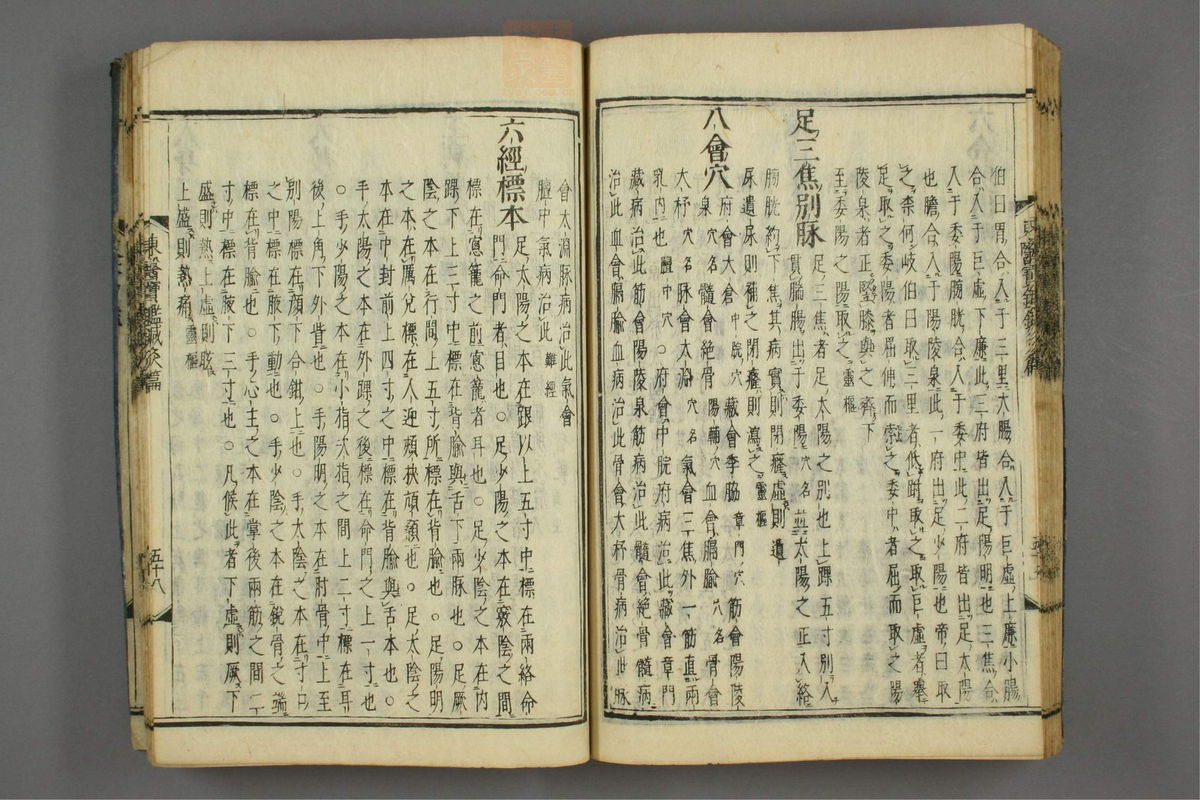 伯曰胃合入于三里大腸合入于巨虛上廉小腸
合入于巨虛下廉此三府皆出足陽明也三焦合
入于委陽膀胱合入于委中此二府皆出足太陽
也膽合入于陽陵泉此一府出足少陽也帝曰取
之奈何岐伯曰取三里者低跗取之取巨虛者擧
足取之委陽者屈伸而索之委中者屈而取之陽
陵泉者正竪膝與之齊下
至委陽之陽取之靈樞
足三焦別脉
足三焦者足太陽之別也上踝五寸別入
貫腨腸出于委陽穴名並太陽之正入絡
膀胱約下焦其病實則閉癃虛則遺
尿遺尿則補之閉癃則瀉之靈樞
八會穴
府會大倉中脘穴藏會季脇章門穴筋會陽陵
泉穴名髓會絶骨陽輔穴血會膈腧穴名骨會
大杼穴名脉會太淵穴名氣會三焦外一筋直兩
乳內也膻中穴○府會中脘府病治此藏會章門
藏病治此筋會陽陵泉筋病治此髓會絶骨髓病
治此血會膈腧血病治此骨會大杼骨病治此脉
會太淵脉病治此氣會
膻中氣病治此難經
六經標本
足太陽之本在跟以上五寸中標在兩絡命
門命門者目也○足少陽之本在竅陰之間
標在窓籠之前窓籠者耳也○足少陰之本在內
踝下上三寸中標在背腧與舌下兩脉也○足厥
陰之本在行間上五寸所標在背腧也○足陽明
之本在厲兌標在人迎頰挾頏顙也○足太陰之
本在中封前上四寸之中標在背腧與舌本也○
手太陽之本在外踝之後標在命門之上一寸也
○手少陽之本在小指次指之間上二寸標在耳
後上角下外眥也○手陽明之本在肘骨中上至
別陽標在顔下合鉗上也○手太陰之本在寸口
之中標在腋下動也○手少陰之本在銳骨之端
標在背腧也○手心主之本在掌後兩筋之間二
寸中標在腋下三寸也○凡候此者下虛則厥下
盛則熱上虛則眩
上盛則熱痛靈樞
東醫寶鑑鍼灸篇
五十八